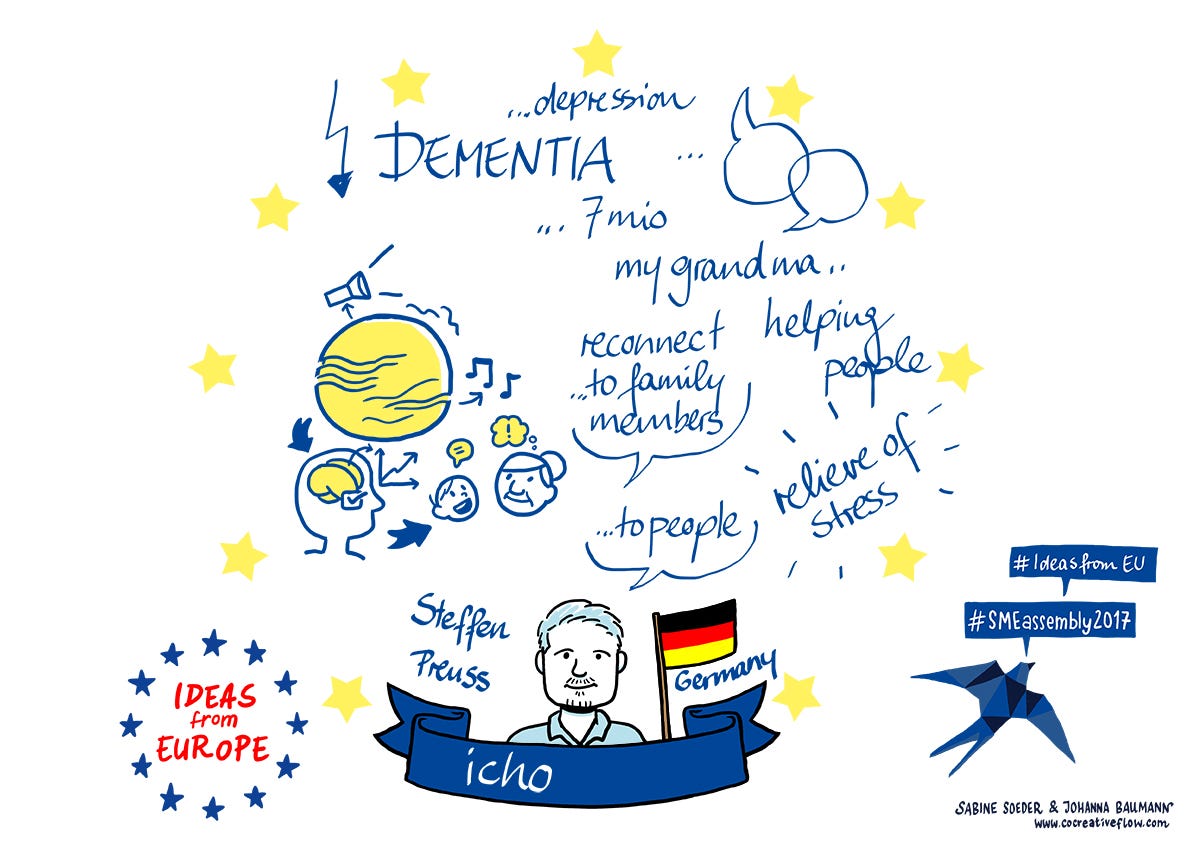 ...depression
DEMENTIA ...
... 7mio
my grandma..
helping
people
reconnect
...to family
members
relieve of
stress
...to people
Steffen
Preuss
Germany
icho
IDEAS
from
EUROPE
#Ideasfrom EU
#SMEassembly2017
SABINE SOEDER & JOHANNA BAUMANN
www.cocreativeflow.com